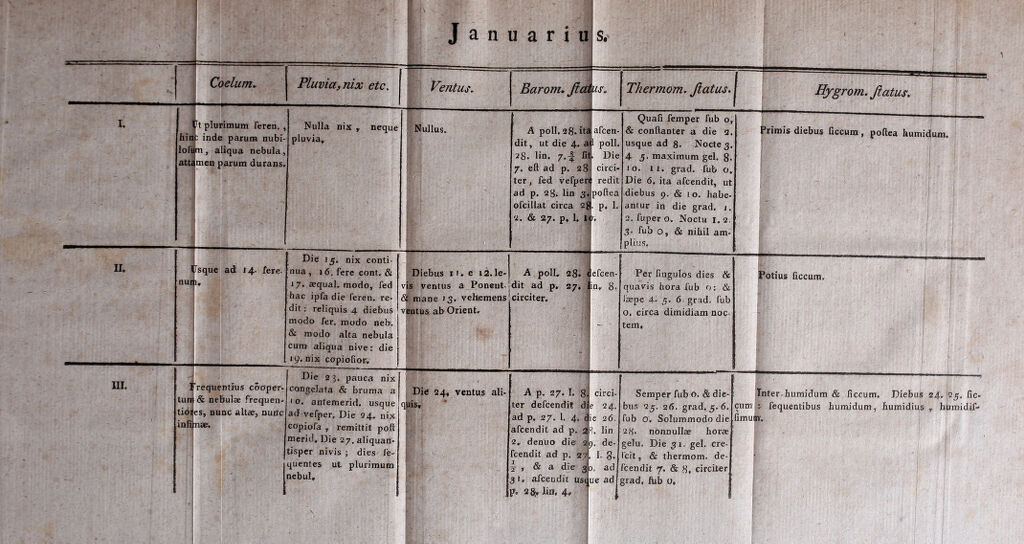 Januarius.
Coelum.
Pluvia, nix etc.
Ventus.
Barom. ſtatus.
Thermom. ſtatus.
Hygrom. ſtatus.
I.
Ut plurimum ſeren.,
hinc inde parum nubi-
loſum, aliqua nebula,
attamen parum durans.
Nulla nix, neque
pluvia.
Nullus.
A poll. 28. ita aſcen-
dit, ut die 4. ad poll.
28. lin. 7. ¾ ſit. Die
7. eſt ad p. 28 circi-
ter, ſed veſpere redit
ad p. 28. lin 3. poſtea
oſcillat circa 28. p. l.
2. & 27. p. l. 10.
Quaſi ſemper ſub 0,
& conſtanter a die 2.
usque ad 8. Nocte 3.
4. 5. maximum gel. 8.
10. 11. grad. ſub 0.
Die 6. ita aſcendit, ut
diebus 9. & 10. habe-
antur in die grad. 1.
2. ſuper 0. Noctu 1. 2.
3. ſub 0, & nihil am-
plius.
Primis diebus ſiccum, poſtea humidum.
II.
Usque ad 14. ſere-
num.
Die 15. nix conti-
nua, 16. fere cont. &
17. æqual. modo, ſed
hac ipſa die ſeren. re-
dit: reliquis 4 diebus
modo ſer. modo neb.
& modo alta nebula
cum aliqua nive: die
19. nix copioſior.
Diebus 11. e 12. le-
vis ventus a Ponent.
& mane 13. vehemens
ventus ab Orient.
A poll. 28. deſcen-
dit ad p. 27. lin. 8.
circiter.
Per ſingulos dies &
quavis hora ſub 0: &
ſæpe 4. 5. 6. grad. ſub
0. circa dimidiam noc-
tem.
Potius ſiccum.
III.
Frequentius cooper-
tum & nebulæ frequen-
tiores, nunc altæ, nunc
infimæ.
Die 23. pauca nix
congelata & bruma a
10. antemerid. usque
ad veſper. Die 24. nix
copioſa, remittit poſt
merid. Die 27. aliquan-
tisper nivis; dies ſe-
quentes ut plurimum
nebul.
Die 24. ventus ali-
quis.
A p. 27. l. 8. circi-
ter deſcendit die 24.
ad p. 27. l. 4. die 26.
aſcendit ad p. 28. lin
2. denuo die 29. de-
ſcendit ad p. 27. l. 8.
½, & a die 30. ad
31. aſcendit usque ad
p. 28. lin. 4.
Semper ſub 0. & die-
bus 25. 26. grad. 5. 6.
ſub 0. Solummodo die
28. nonnullæ horæ
gelu. Die 31. gel. cre-
ſcit, & thermom. de-
ſcendit 7. & 8. circiter
grad. ſub 0.
Inter humidum & ſiccum. Diebus 24. 25. ſic-
cum: ſequentibus humidum, humidius, humidiſ-
ſimum.